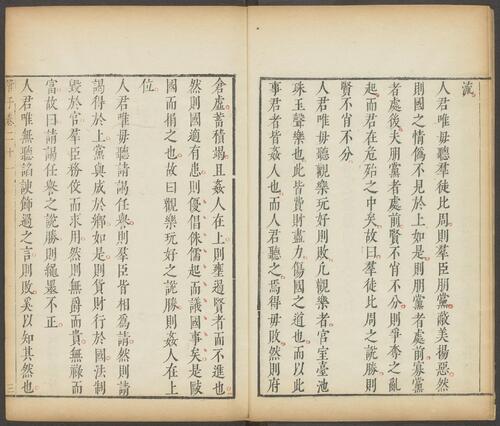 流
人君唯毋聽羣徒比周則羣臣朋黨蔽美揚惡然
則國之情僞不見於上如是則朋黨者處前寡黨
者處後夫朋黨者處前賢不肖不分則爭奪之亂
起而君在危殆之中矣故曰羣徒比周之說勝則
賢不肖不分
人君唯毋聽觀樂玩好則敗凡觀樂者宮室臺池
珠玉聲樂也此皆費財盡力傷國之道也而以此
事君者皆姦人也而人君聽之焉得毋敗然則府
倉虛蓄積竭且姦人在上則壅遏賢者而不進也
然則國適有患則優倡侏儒起而議國事矣是敺
國而捐之也故曰觀樂玩好之說勝則姦人在上
位
人君唯毋聽請謁任譽則羣臣皆相爲請然則請
謁得於上黨與成於鄉如是則貨財行於國法制
毀於官羣臣務佼而求用然則無爵而貴無祿而
富故曰請謁任譽之說勝則繩墨不正
人君唯無聽諂諛飾過之言則敗奚以知其然也
管子卷二十一
三